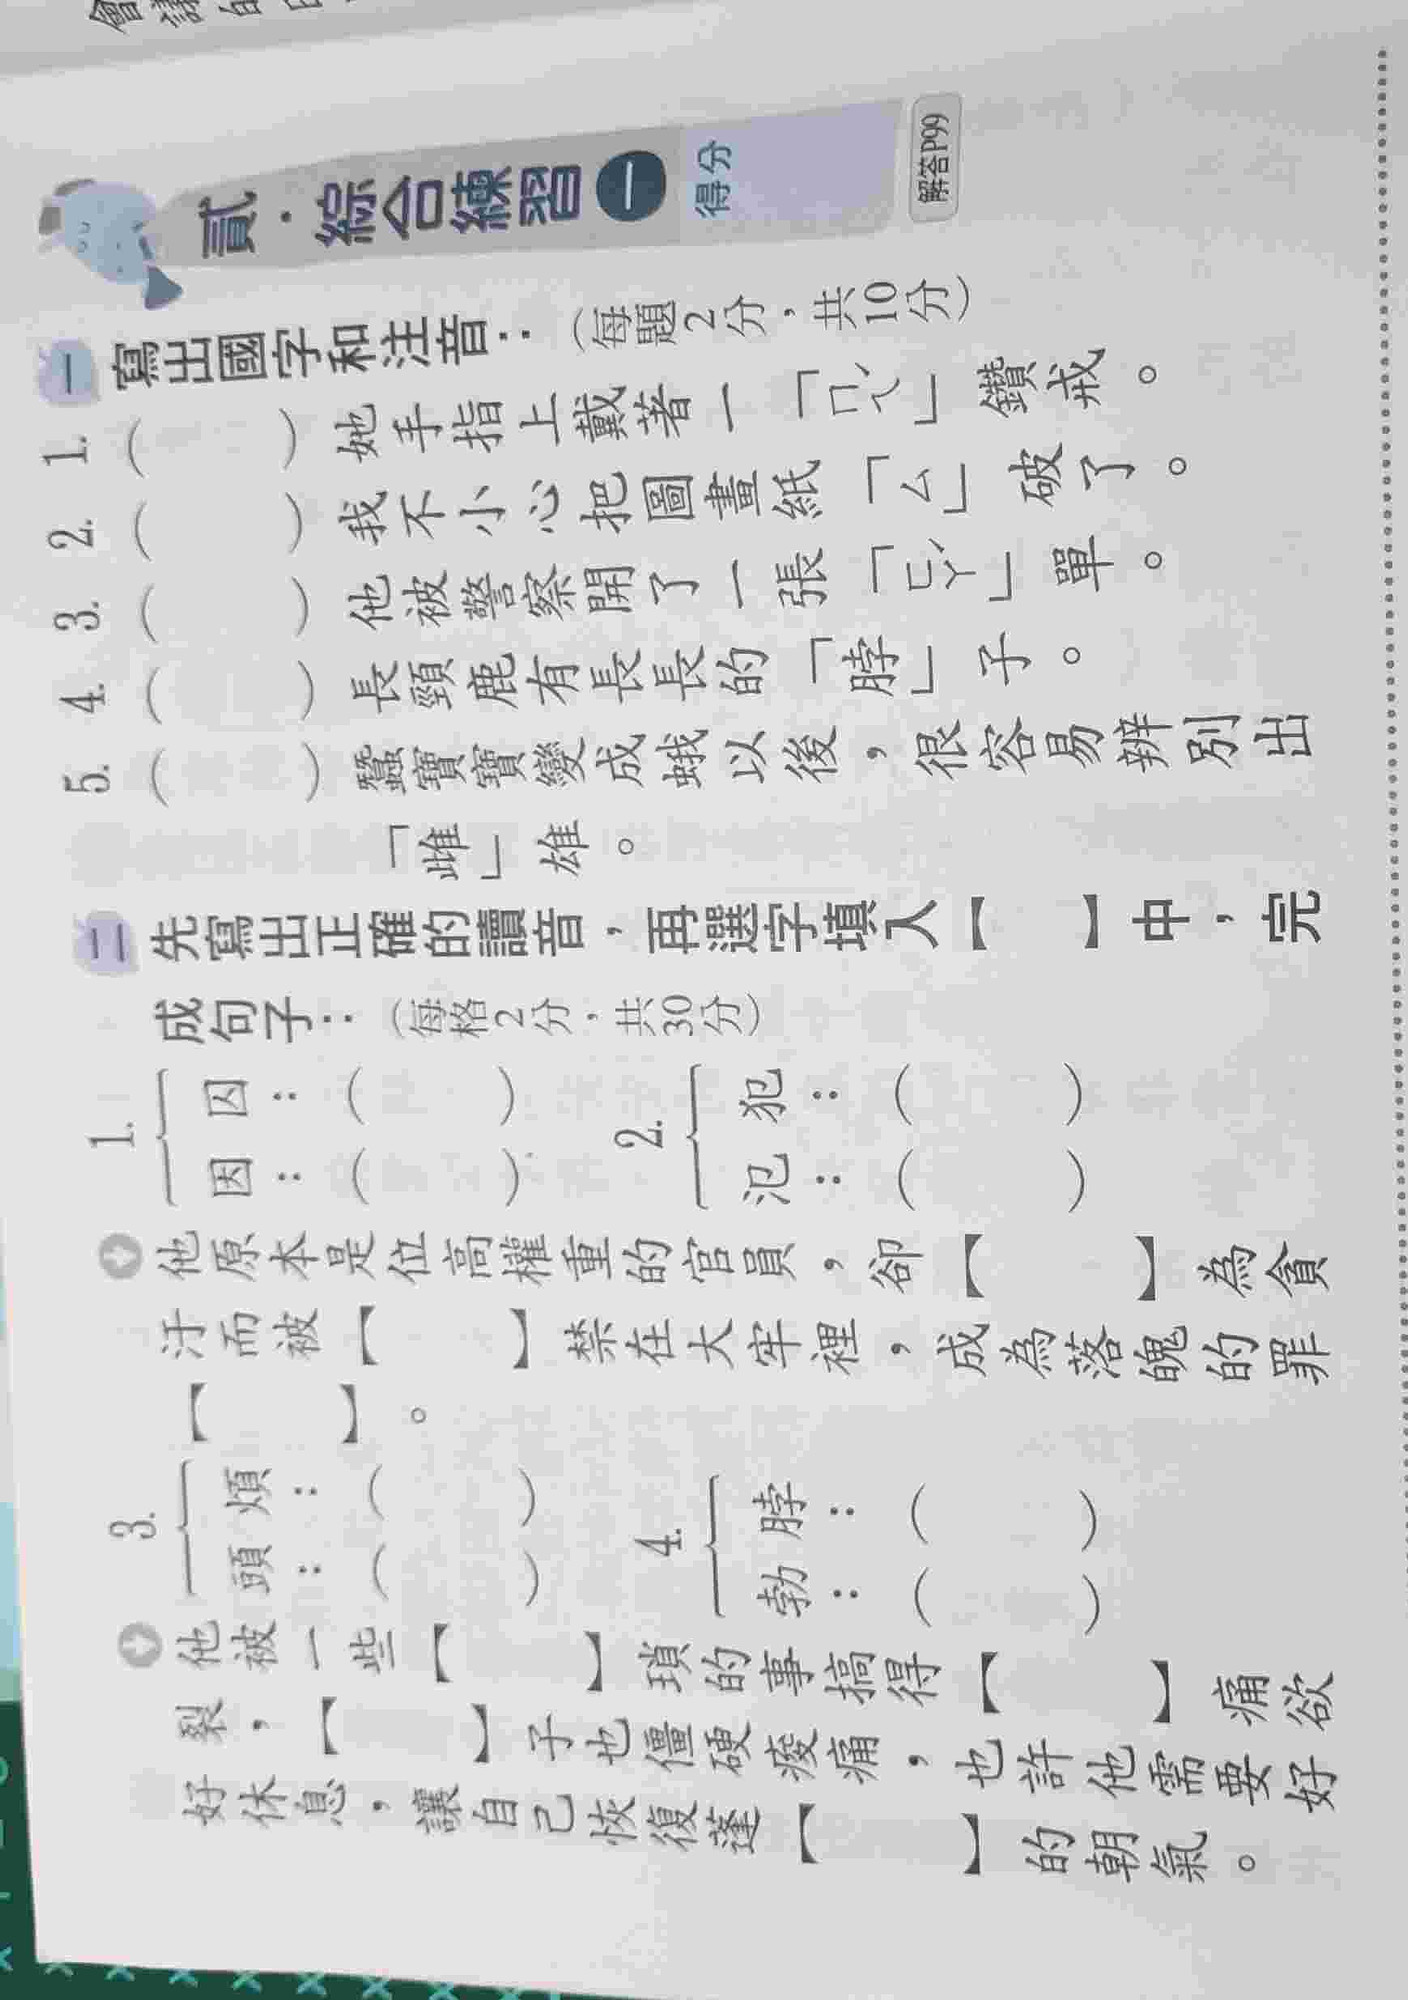 貳．綜合練習 一
得分
解答P99
一 寫出國字和注音：（每題2分，共10分）
1.（　　）她手指上戴著一「ㄇㄟˊ」鑽戒。
2.（　　）我不小心把圖畫紙「ㄙ」破了。
3.（　　）他被警察開了一張「ㄈㄚˊ」單。
4.（　　）長頸鹿有長長的「脖」子。
5.（　　）蠶寶寶變成蛾以後，很容易辨別出
「雌」雄。
二 先寫出正確的讀音，再選字填入【　　】中，完
成句子：（每格2分，共30分）
1.
囚：（　　）
因：（　　）
2.
犯：（　　）
氾：（　　）
他原本是位高權重的官員，卻【　　】為貪
汙而被【　　】禁在大牢裡，成為落魄的罪
【　　】。
3.
煩：（　　）
頭：（　　）
4.
脖：（　　）
勃：（　　）
他被一些【　　】瑣的事搞得【　　】痛欲
裂，【　　】子也僵硬痠痛，也許他需要好
好休息，讓自己恢復蓬【　　】的朝氣。